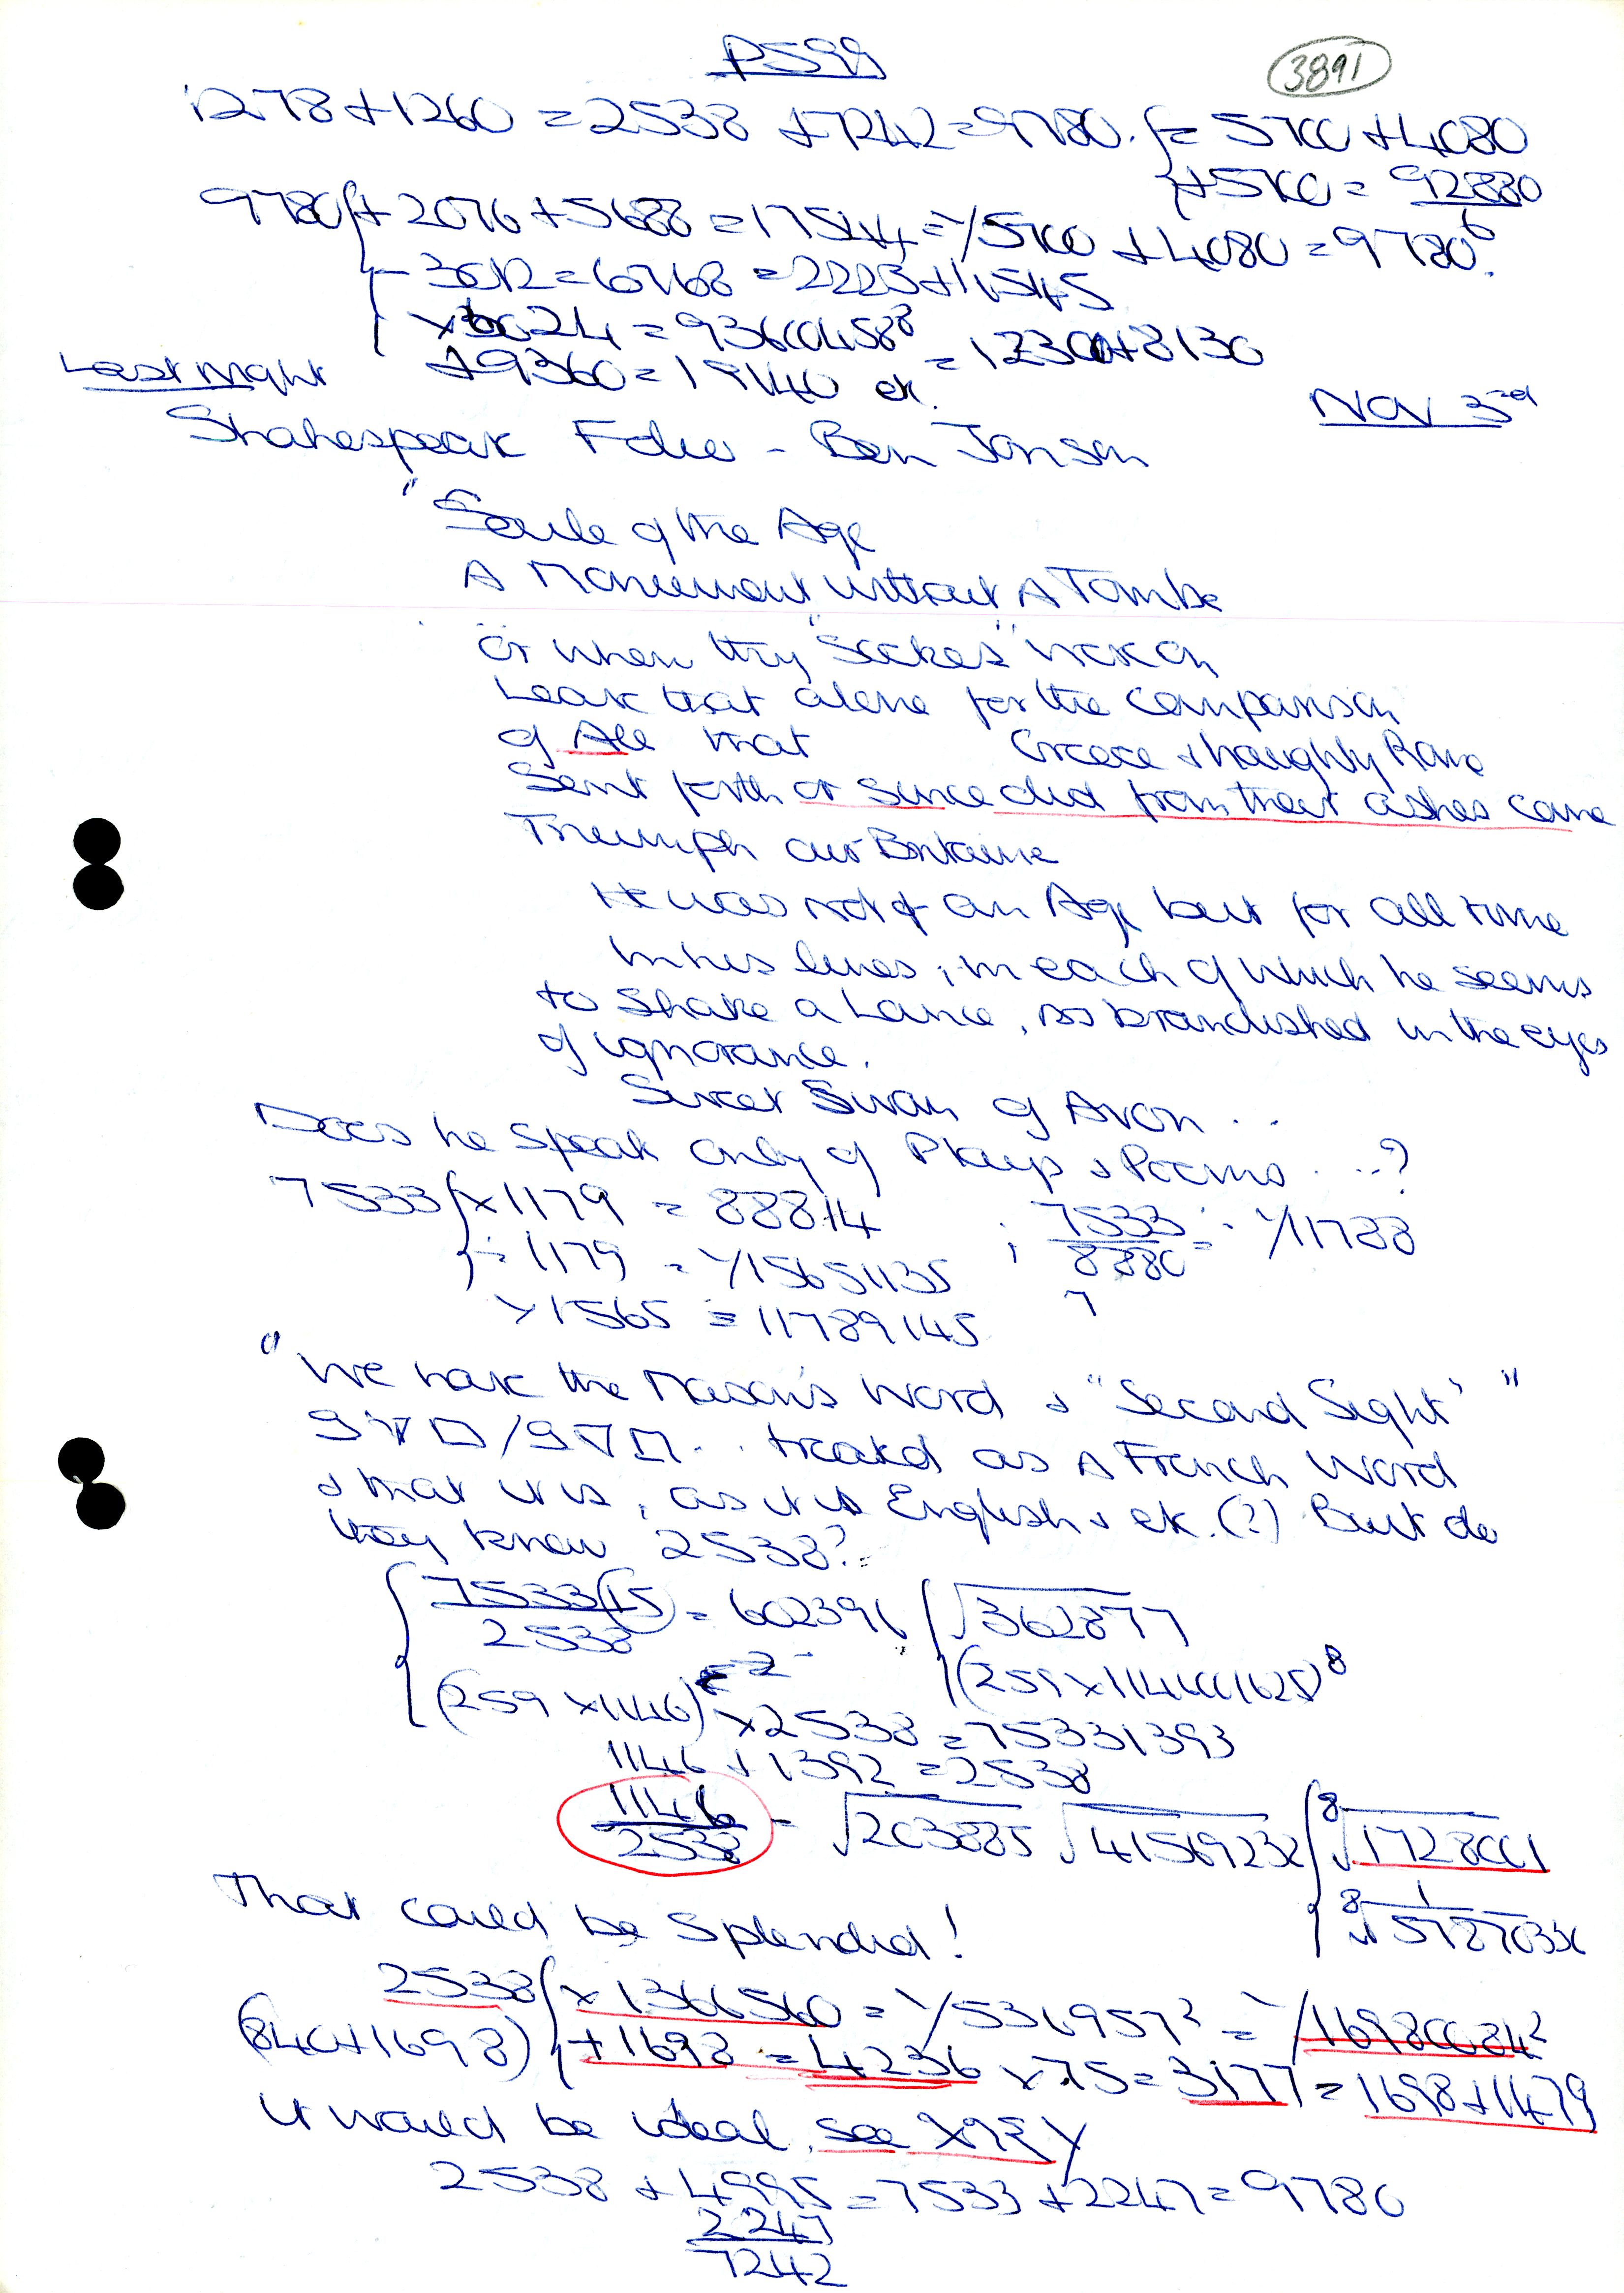 P599
3891
1278 + 1260 = 2538 + 7242 = 9780. { = 5700 + 4080
+ 5700 = 92880
6
9780 { + 2076 + 5688 = 17544 = 1/5700 + 4080 = 9780.
- 3012 = 6768 = 2223 + 4545
= 93600458⁸ = 12300 + 8130
+ 9360 = 19140 etc.
Last night
Nov 3rd
Shakespeare Folio - Ben Jonson
"Soule of the Age
A Moniment without A Tombe
Or when thy "Sockes" were on
Leave that alone for the comparison
of All that Greece & haughty Rome
Sent forth or since did from their ashes come
Triumph our Britaine
He was not of an Age but for all time
In his lines, in each of which he seems
to Shake a Lance, as brandished in the eyes
of ignorance.
Sweet Swan of Avon . .
Does he speak only of Plays & Poems . . . ?
7533 { x 1179 = 88814 ; 7533/8880 = 1/11788
÷ 1179 = 1/15651135
7
x 1565 = 11789145
"We have the Mason's Word & "Second Sight" "
treated as A French Word
& that it is, as it is English & etc. (?) But do
they know 2538?
7533(15)/2538 = 602396 { √362877
(259 x 1146) x 2538 = 75331393
1146 + 1392 = 2538
1146/2538 = √203885 √41569232 { ⁸√1728001
That could be Splendid!
2538 { x 1366560 = 1/536957² = 1/169800684²
(840 + 1698) + 1698 = 4236 x .75 = 3177 = 1698 + 1479
It would be ideal, see
2538 + 4995 = 7533 + 2247 = 9780
2247
7242